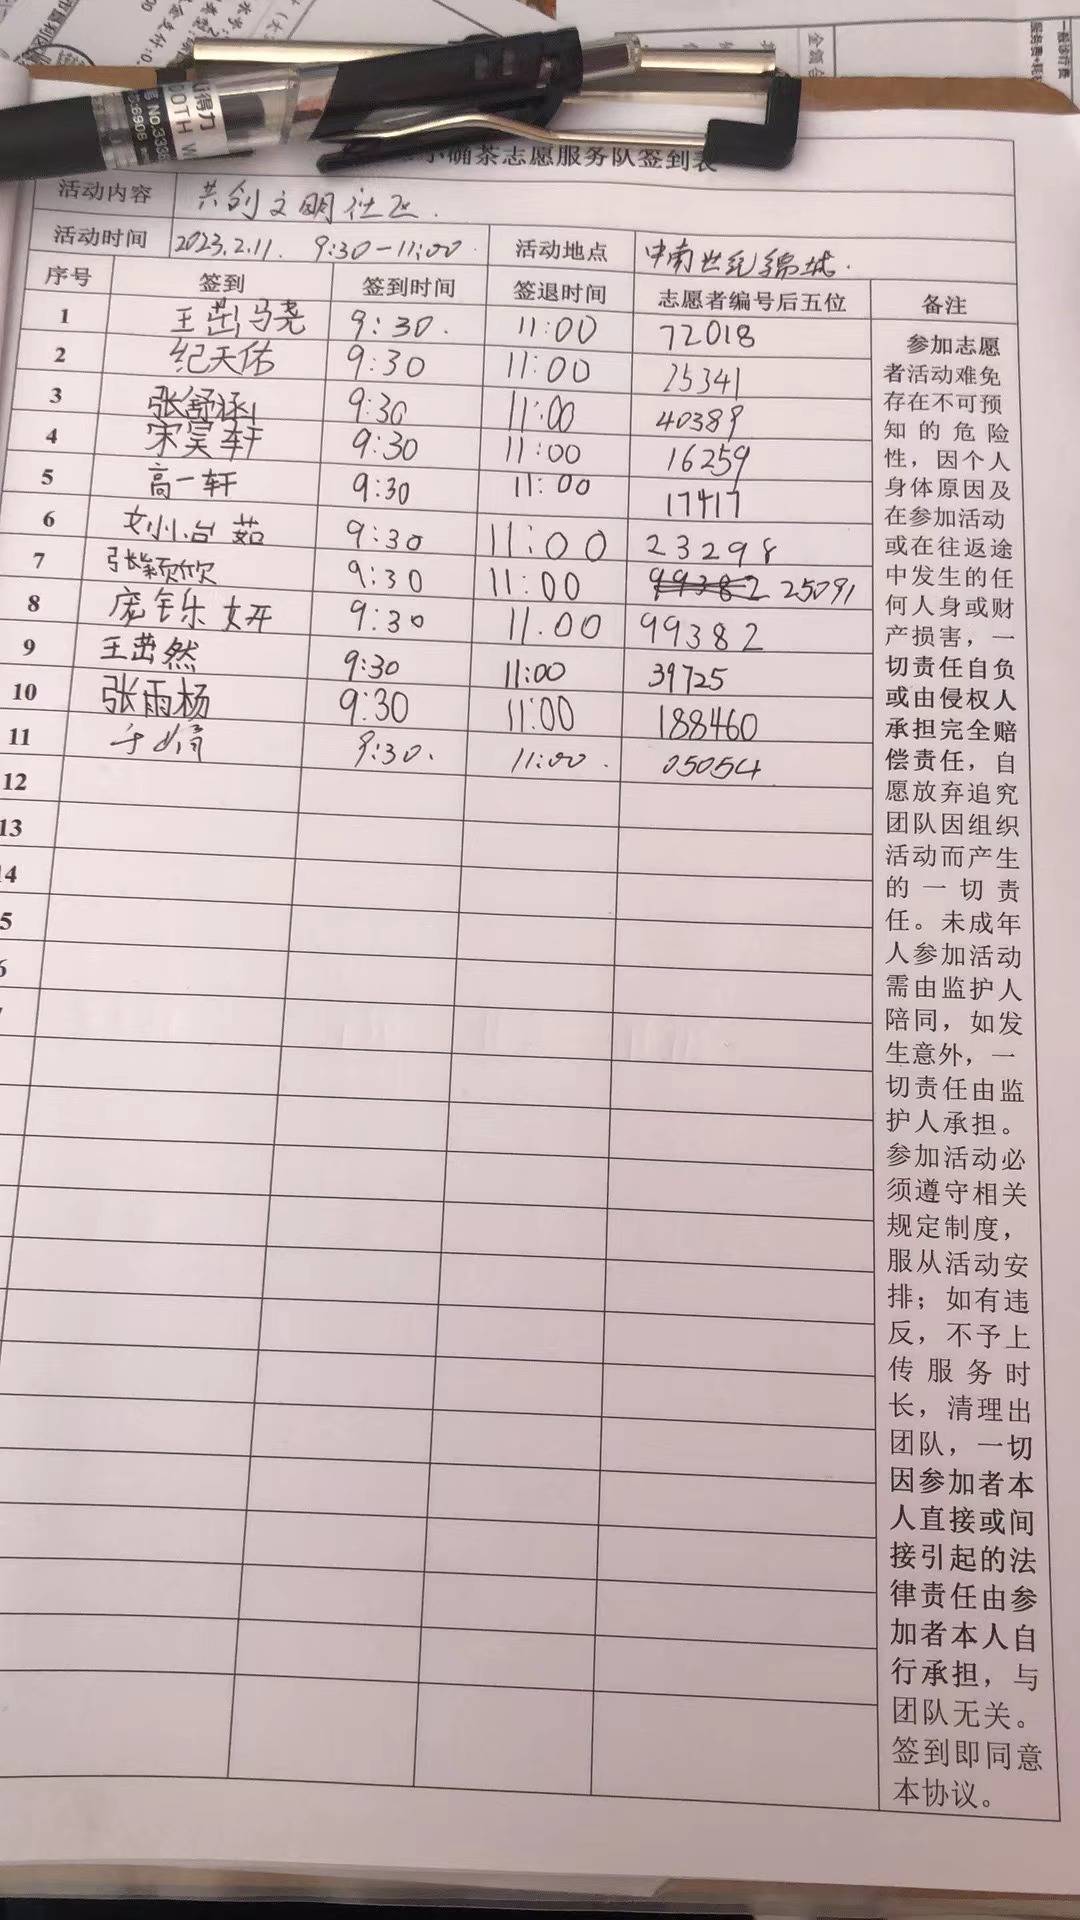 小确茶志愿服务队签到表
活动内容 共创文明社区.
活动时间 2023.2.11. 9:30-11:00. 活动地点 中南世纪锦城.
序号 签到 签到时间 签退时间 志愿者编号后五位 备注
1 王茁骁 9:30. 11:00 72018
2 纪天佑 9:30 11:00 25341
3 张舒涵 9:30 11:00 40389
4 宋昊轩 9:30 11:00 16259
5 高一轩 9:30 11:00 17417
6 刘小台茹 9:30 11:00 23298
7 张颖欣 9:30 11:00 99382 25091
8 庞钰妍 9:30 11.00 99382
9 王茁然 9:30 11:00 39725
10 张雨杨 9:30 11:00 188460
11 9:30. 11:00. 05054
12
13
14
5
6
参加志愿
者活动难免
存在不可预
知的危险
性，因个人
身体原因及
在参加活动
或在往返途
中发生的任
何人身或财
产损害，一
切责任自负
或由侵权人
承担完全赔
偿责任，自
愿放弃追究
团队因组织
活动而产生
的一切责
任。未成年
人参加活动
需由监护人
陪同，如发
生意外，一
切责任由监
护人承担。
参加活动必
须遵守相关
规定制度，
服从活动安
排；如有违
反，不予上
传服务时
长，清理出
团队，一切
因参加者本
人直接或间
接引起的法
律责任由参
加者本人自
行承担，与
团队无关。
签到即同意
本协议。